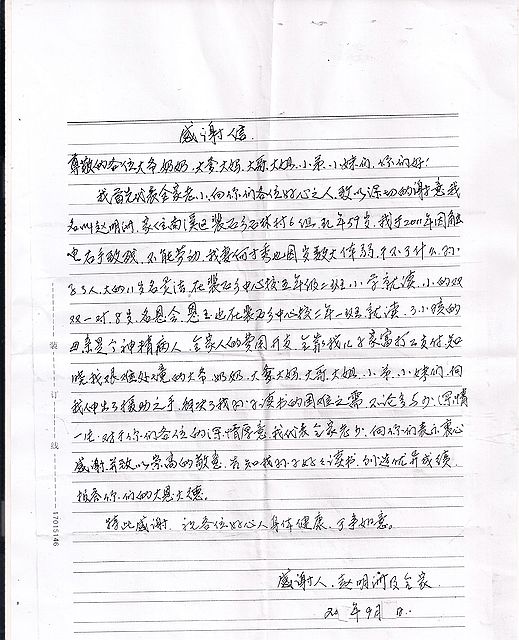 感谢信
尊敬的各位大爷奶奶,大叔大妈,大哥大姐,小弟、小妹们,你们好!
我首先代表全家老小,向你们各位好心之人,致以深切的谢意,我
名叫赵明洲,家住南溪区裴石乡石林村6组,现年59岁,我于2011年因触
电右手致残,不能劳动,我妻何才秀也因岁数大体弱,干不了什么,孙
子3人,大的11岁名灵洁,在裴石乡中心校五年级二班小学就读,小的双
双一对,8岁名恩会,恩玉也在裴石乡中心校二年一班就读,3小孩的
母亲是个神精病人,全家人的费用开支,全靠我儿子家富打工支付,知
晓我艰难处境的大爷,奶奶,大叔大妈,大哥大姐,小弟,小妹们,向
我伸出了援助之手,解决了我孙子读书的困难之需,不论多与少,深情
一片,对于你们各位的深情厚意,我代表全家老少,向你们表示衷心
感谢,并致以崇高的敬意,告知我孙子好好读书,创造优异成绩,
报答你们的大恩大德。
特此感谢,祝各位好心人身体健康,万事如意。
感谢人:赵明洲及全家
年9月
装 订 线
17015146